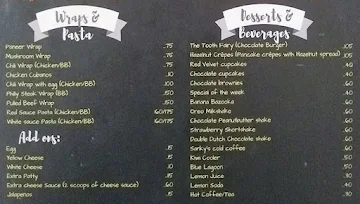 Wraps &
Pasta
Paneer Wrap .75
Mushroom Wrap .75
Chili Wrap (Chicken/BB) .75
Chicken Cubanos .10
Chili Wrap with egg (Chicken/BB) .100
Philly Steak Wrap (BB) .150
Pulled Beef Wrap .150
Red Sauce Pasta (Chicken/BB) 160/175
White sauce Pasta (Chicken/BB) 160/175
Add ons:
Egg .15
Yellow Cheese .15
White Cheese .10
Extra Patty .35
Extra cheese Sauce (2 scoops of cheese sauce) .60
Jalapenos .15
Desserts &
Beverages
The Tooth Fairy (Chocolate Burger) .105
Hazelnut Crêpes (Pancake crêpes with Hazelnut spread) .105
Red Velvet cupcakes .40
Chocolate cupcakes .40
Chocolate brownies .60
Special of the week .40
Banana Bazooka .60
Oreo Milkshake .60
Chocolate Peanutbutter shake .60
Strawberry Shortshake .60
Double Dutch Chocolate shake .60
Sarky's cold coffee .60
Kiwi Cooler .50
Blue Lagoon .50
Lemon Juice .30
Lemon Soda .40
Hot Coffee/Tea .30